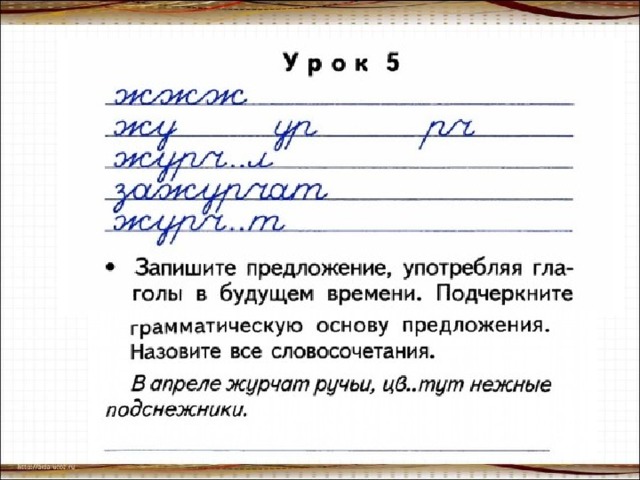 Урок 5
жжж
жу ур рч
журч..л
зажурчат
журч..т
• Запишите предложение, употребляя гла-
голы в будущем времени. Подчеркните
грамматическую основу предложения.
Назовите все словосочетания.
В апреле журчат ручьи, цв..тут нежные
подснежники.
http://aida.ucoz.ru